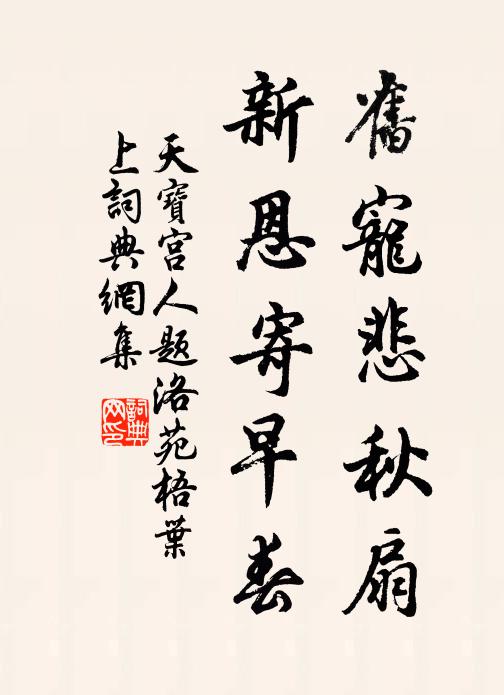 舊寵悲秋扇
新恩寄早春
天寶宮人題洛苑梧葉
上詞典網集
詞典
网印